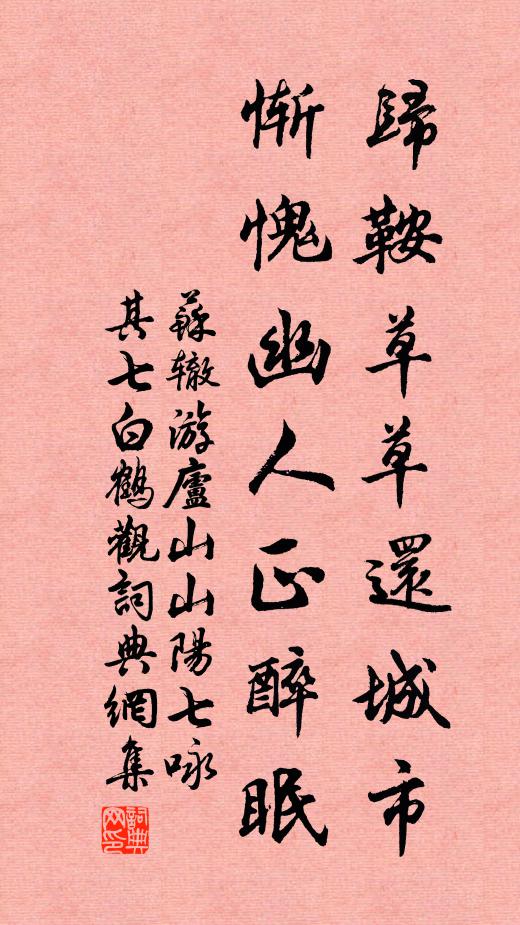 歸鞍草草還城市
慚愧幽人正醉眠
蘇辙游廬山山陽七咏
其七白鶴觀詞典網集
詞典
网印